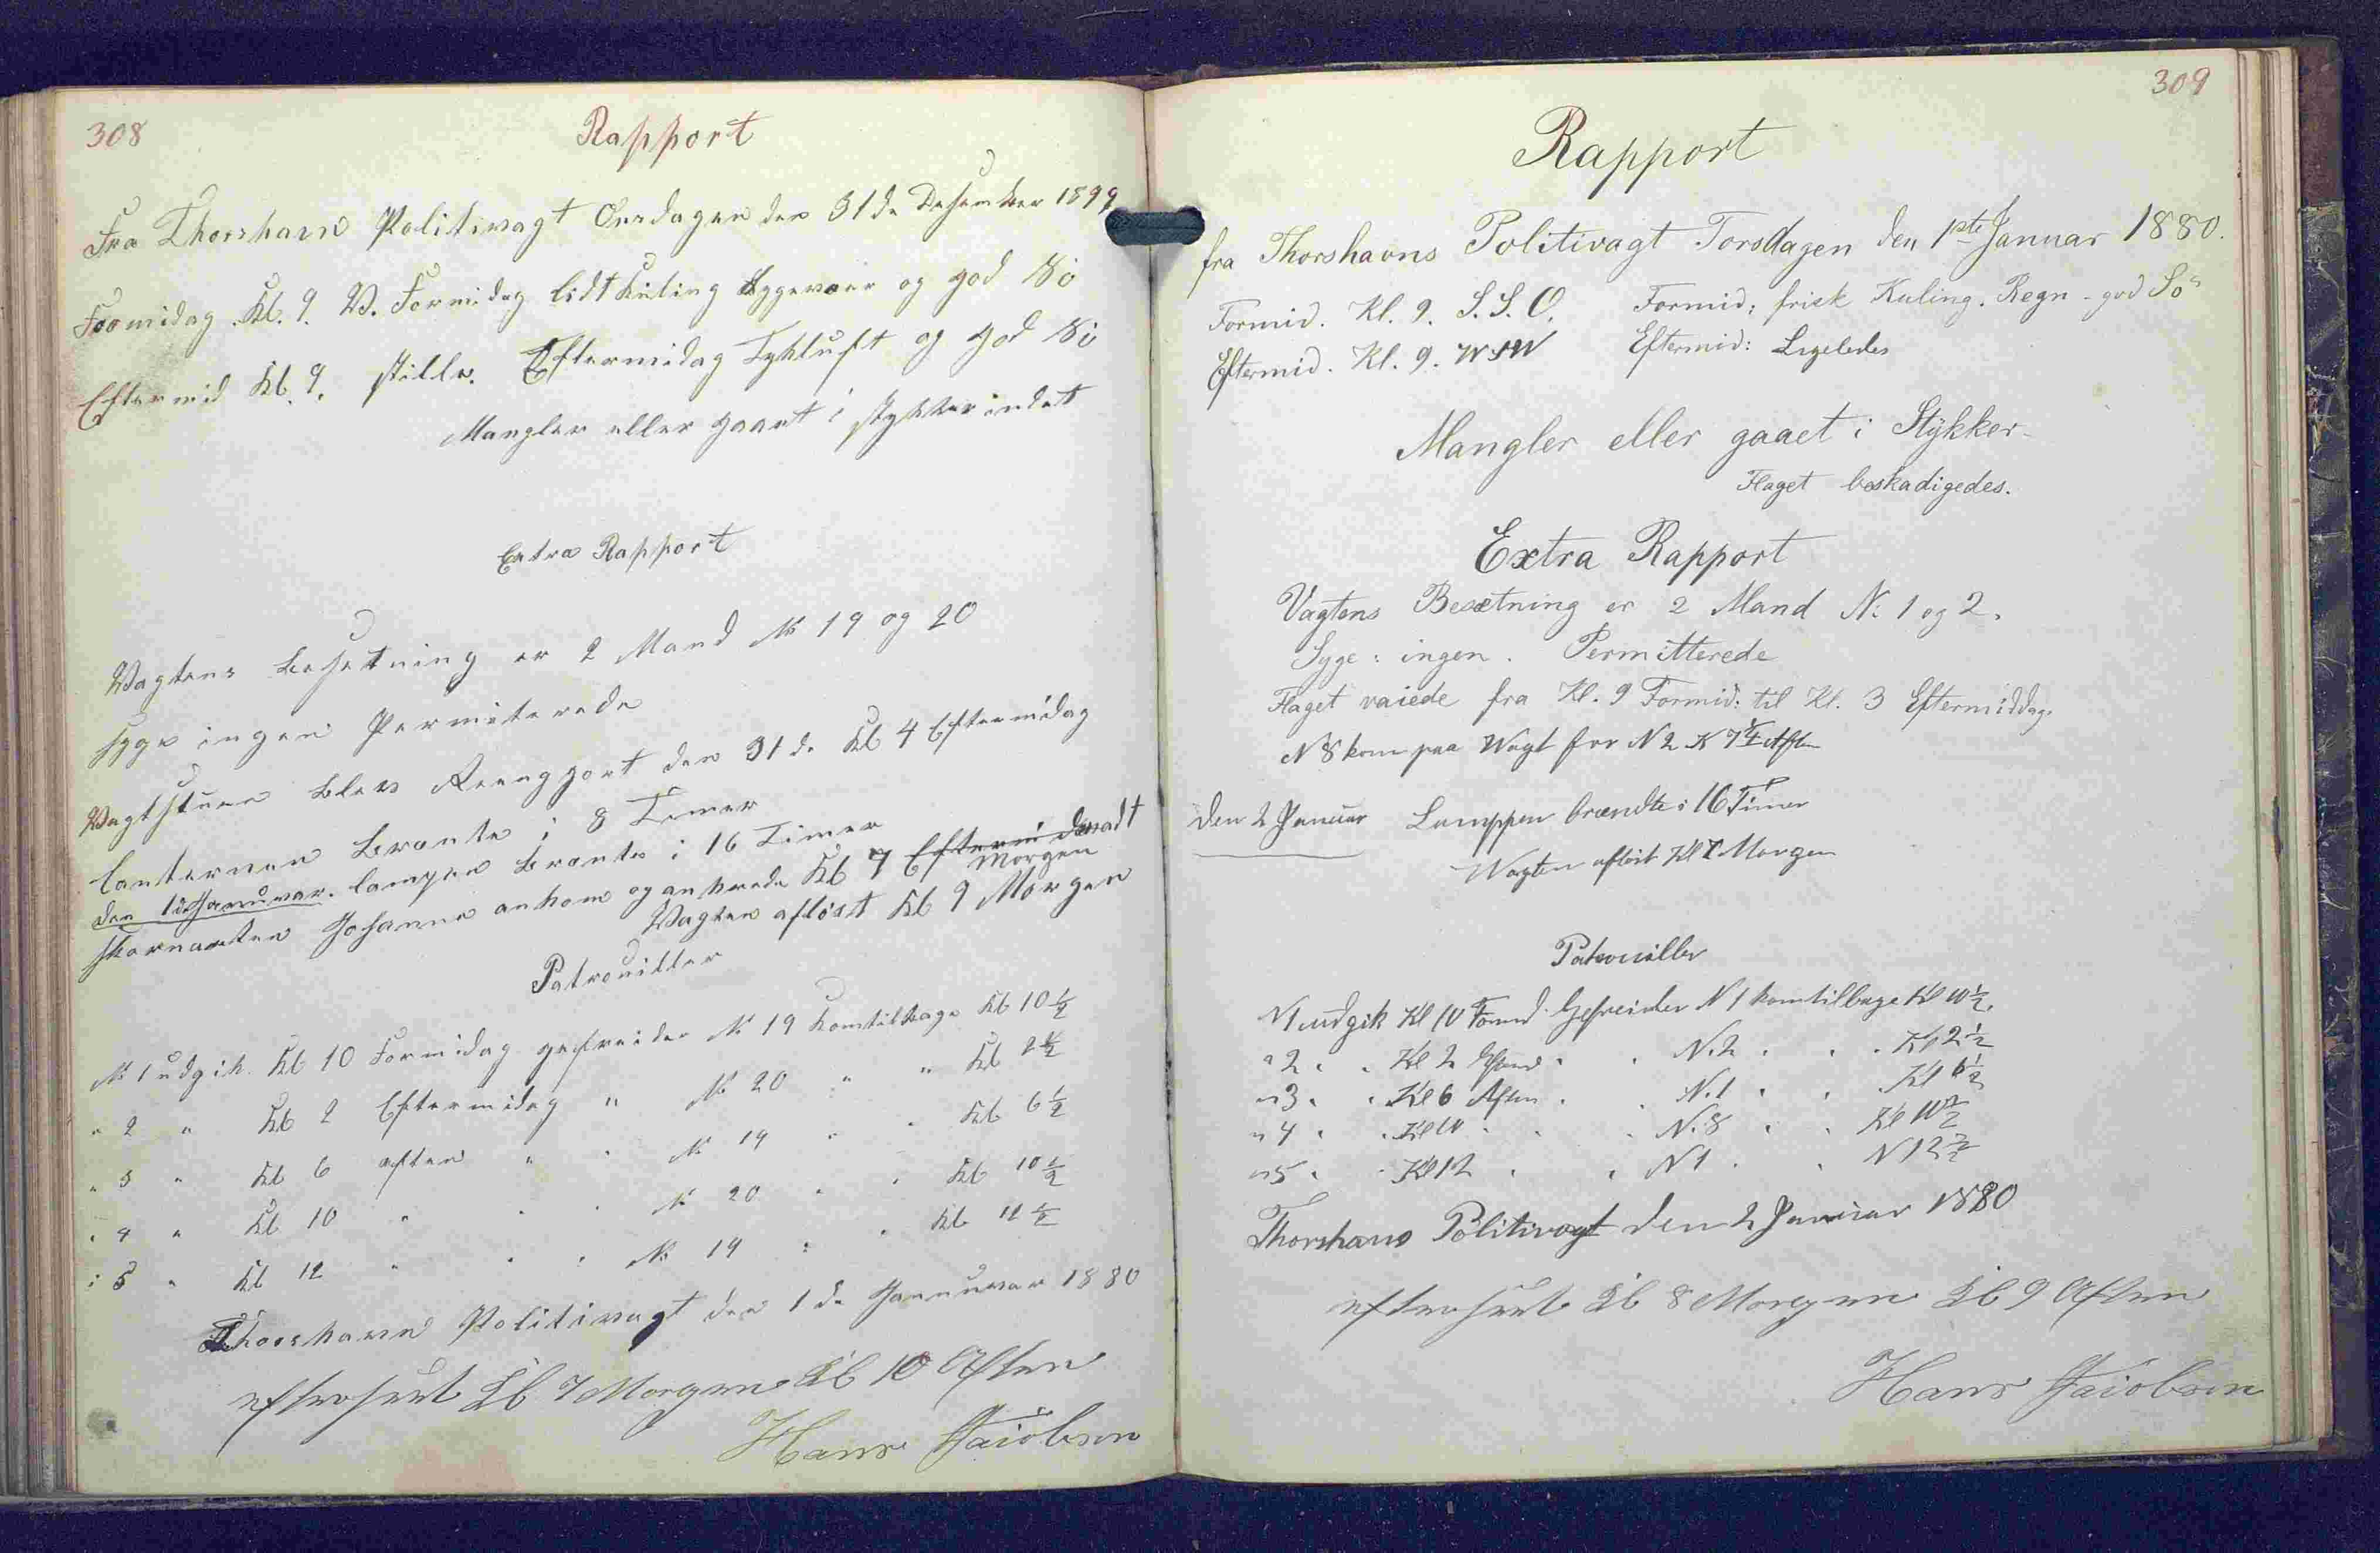 308
Rapport
Fra Thorshavn Politivagt Onsdagen den 31de Desember 1899
Formidag Kl. 9. V. Formidag lidt Kuling Byggevær og god Sö
Eftermid Kl. 9. stille. Eftermidag Tykluft og god Sö
Mangler eller gaaet i stykker indet
Extra Rapport
Vagtens Besetning er 2 Mand No 19 og 20
syge ingen Permiterede
Vagtstuen Blev Reengjort den 31de Kl 4 Eftermidag
Lanternen Brante i 8 Timer
den 1de Januvar. lampen Brante i 16 Timer
Skonnarten Johanne ankom og ankrede Kl 7 Morgen
Vagten aflöst Kl 9 Morgen
Patrouiller
No 1 udgik Kl 10 Formidag gefreider No 19 komtilbage Kl 10 1/2
" 2 " Kl 2 Eftermidag " No 20 " " Kl 2 1/2
" 3 " Kl 6 aften " " No 19 " " Kl 6 1/2
" 4 " Kl 10 " " " No 20 " " Kl 10 1/2
" 5 " Kl 12 " " " No 19 " " Kl 12 1/2
Thorshavn Politivagt den 1de Januuvar 1880
efterseet Kl 7 Morgen Kl 10 Aften
Hans Jaiobsen
309
Rapport
fra Thorshavns Politivagt Torsdagen den 1ste Januar 1880.
Formid. Kl. 9. S.S.O. Formid: frisk Kuling. Regn - god Sö
Eftermid. Kl. 9. WSW Eftermid: Ligeledes
Mangler eller gaaet i Stykker
Flaget beskadigedes.
Extra Rapport
Vagtens Besætning er 2 Mand N: 1 og 2.
Syge: ingen. Permitterede
Flaget vaiede fra Kl. 9 Formid: til Kl. 3 Eftermiddag.
N 8 kom paa Wagt for N 2 K 7 1/4 Aften
Den 2 Januar Lamppen brændte i 16 Timer
Wagten aflöst Kl 7 Morgen
Patrouiller
N 1 udgik Kl 10 Formd. Gefreider N 1 komtilbage Kl 10 1/2.
" 2 " " Kl 2 " " N. 2 " " Kl 2 1/2
" 3 " " Kl 6 Aften " " N. 1 " " Kl 6 1/2
" 4 " " Kl 10 " " " N. 8 " " Kl 10 1/2
" 5 " " Kl 12 " " N 1 " " N 12 1/2
Thorshavns Politivagt den 2 Januar 1880
efterseet Kl 8 Morgen Kl 9 Aften
Hans Jaiobsen